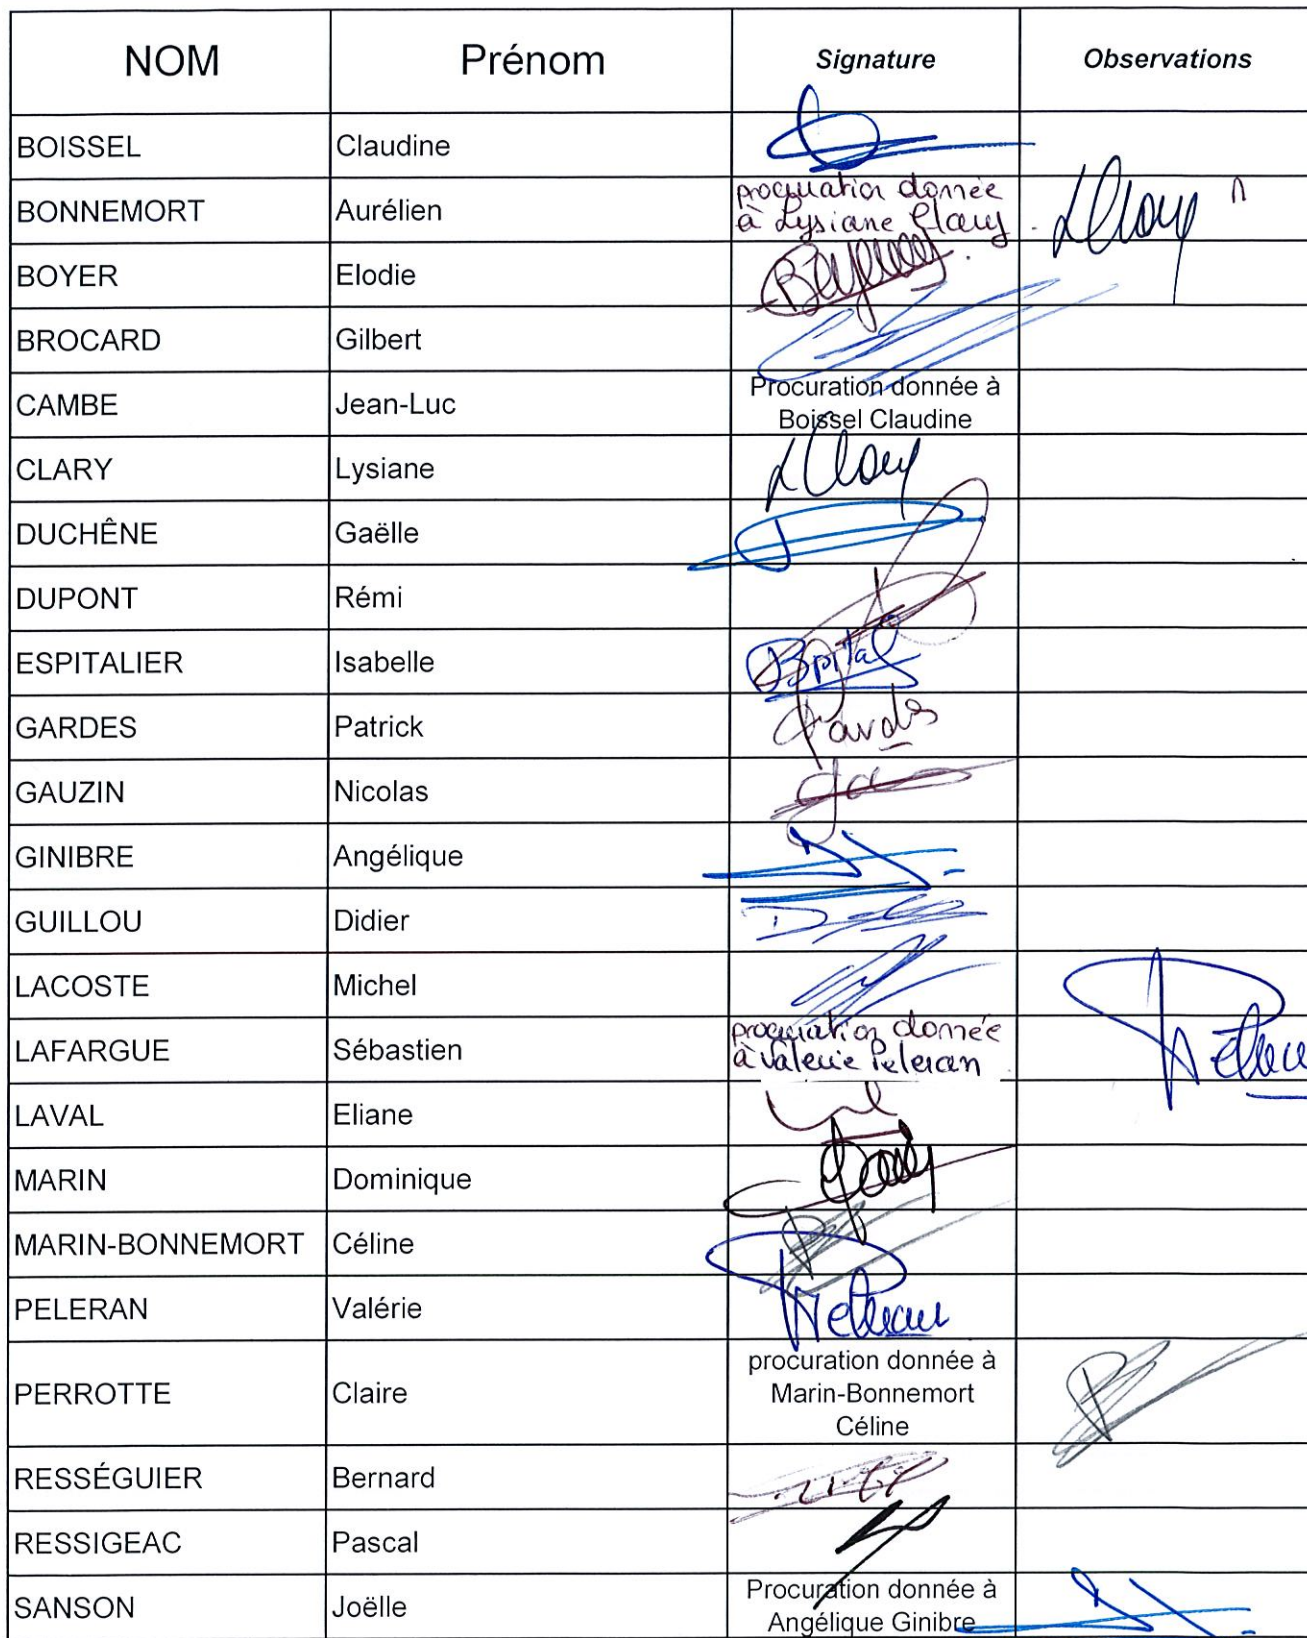 NOM Prénom Signature Observations
BOISSEL Claudine
BONNEMORT Aurélien procuration donnée
à Lysiane Clary
BOYER Elodie
BROCARD Gilbert
CAMBE Jean-Luc Procuration donnée à
Boissel Claudine
CLARY Lysiane
DUCHÊNE Gaëlle
DUPONT Rémi
ESPITALIER Isabelle
GARDES Patrick
GAUZIN Nicolas
GINIBRE Angélique
GUILLOU Didier
LACOSTE Michel
LAFARGUE Sébastien procuration donnée
à Valérie Peleran
LAVAL Eliane
MARIN Dominique
MARIN-BONNEMORT Céline
PELERAN Valérie
PERROTTE Claire procuration donnée à
Marin-Bonnemort
Céline
RESSÉGUIER Bernard
RESSIGEAC Pascal
SANSON Joëlle Procuration donnée à
Angélique Ginibre